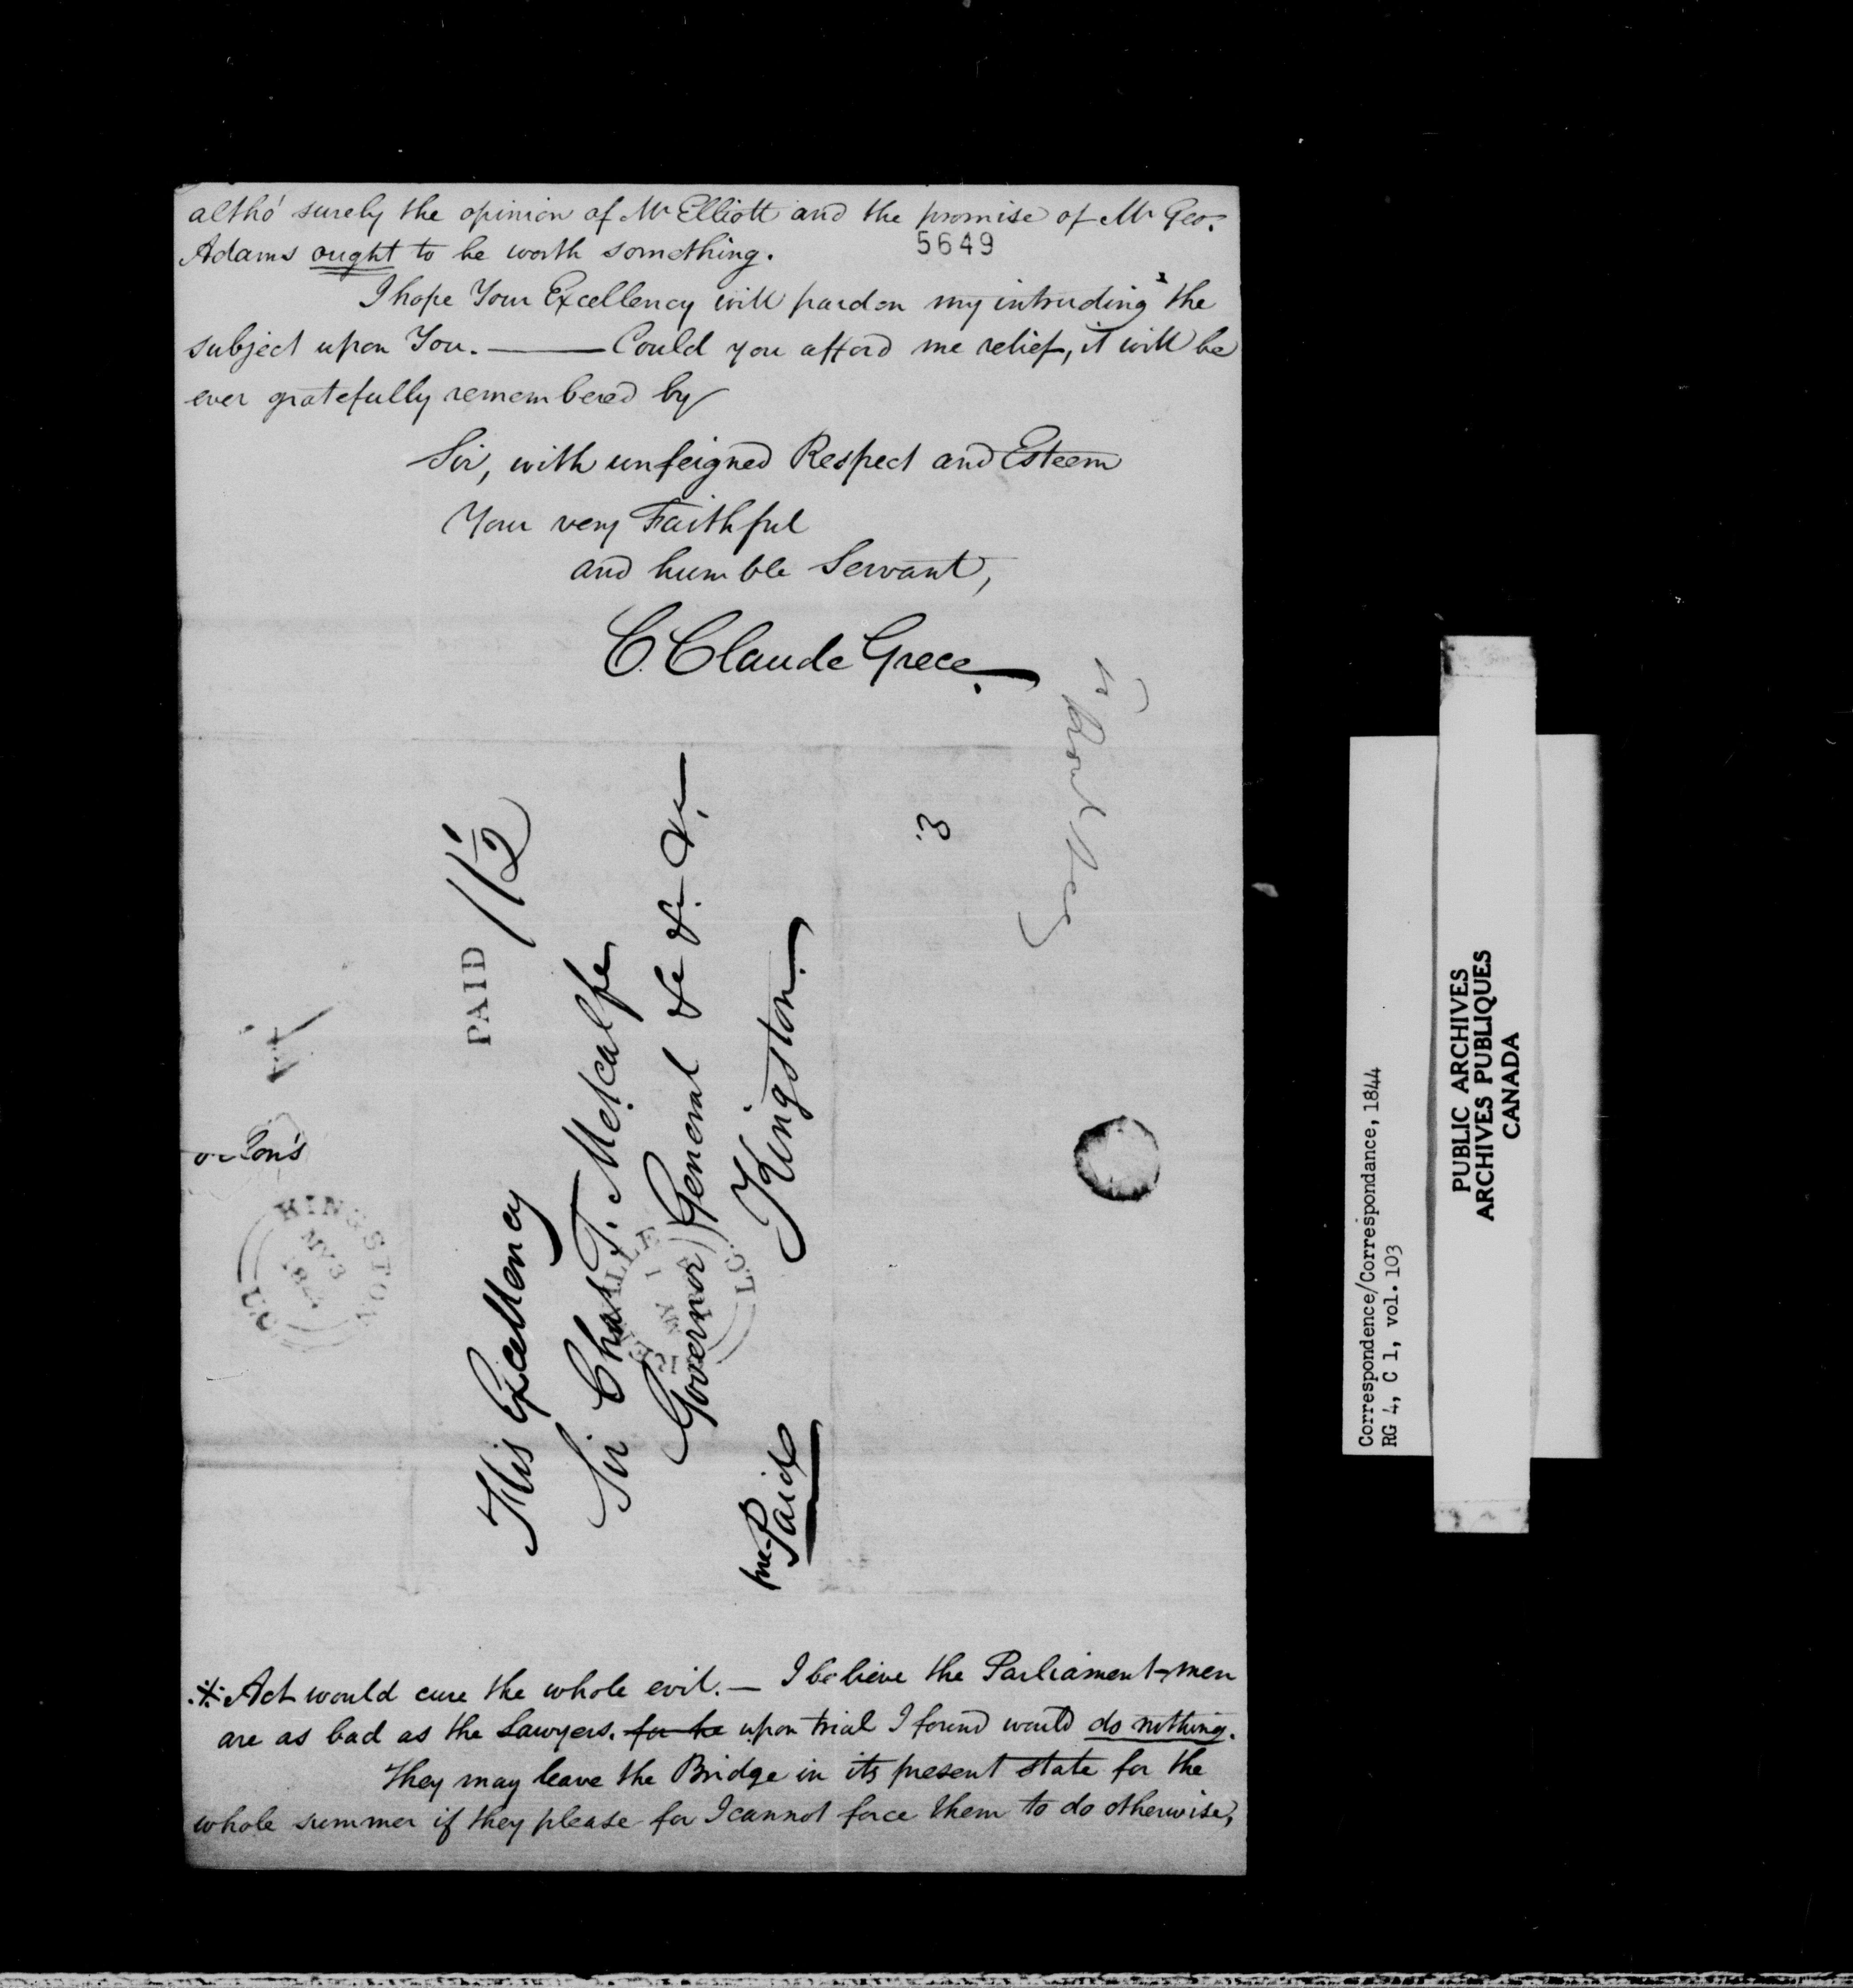 altho' surely the opinion of Mr Elliott and the promise of Mr Geo.
5649
Adams ought to be worth something.
I hope Your Excellency will pardon my intruding the
subject upon You. ——— Could you afford me relief, it will be
ever gratefully remembered by
Sir, with unfeigned Respect and Esteem
Your very Faithful
and humble Servant,
C. Claude Grece.
PAID 1/1½
His Excellency
Sir Chas. T. Metcalfe
Governor General &c &c. &c.
Kingston.
pre-Paid
3
KINGSTON
MY 3
184
U.C.
MY 1
L.C.
※ Act would cure the whole evil. — I believe the Parliament-men
are as bad as the Lawyers. for he upon trial I found would do nothing.
They may leave the Bridge in its present state for the
whole summer if they please for I cannot force them to do otherwise,
Correspondence/Correspondance, 1844
RG 4, C 1, vol. 103
PUBLIC ARCHIVES
ARCHIVES PUBLIQUES
CANADA